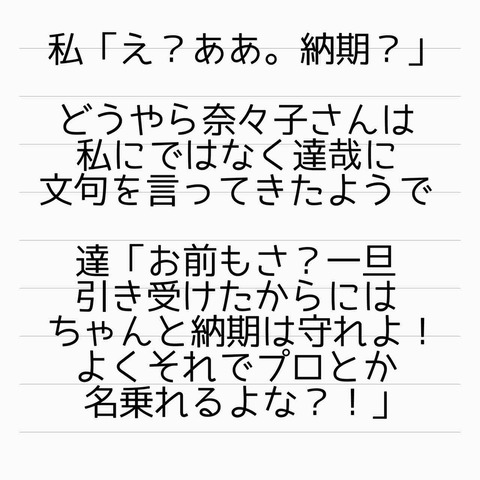 私「え？ああ。納期？」
どうやら奈々子さんは
私にではなく達哉に
文句を言ってきたようで
達「お前もさ？一旦
引き受けたからには
ちゃんと納期は守れよ！
よくそれでプロとか
名乗れるよな？！」